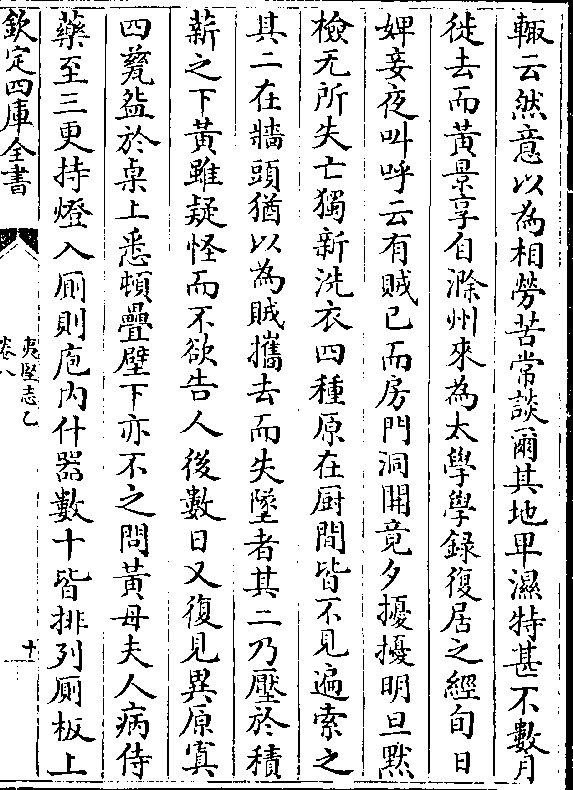 輙云然意以為相勞苦常談爾其地卑濕特甚不數月
徙去而黃景亨自滁州來為太學學錄復居之經旬日
婢妾夜叫呼云有賊已而房門洞開竟夕擾擾明旦㸃
檢无所失亡獨新洗衣四種原在厨間皆不見遍索之
其二在牆頭猶以為賊攜去而失墜者其二乃壓於積
薪之下黃雖疑怪而不欲告人後數日又復見異原寘
四甆盆於桌上悉頓疊壁下亦不之問黃母夫人病侍
藥至三更持燈入厠則庖内什器數十皆排列厠板上
欽定四庫全書
夷堅志乙
卷八
十